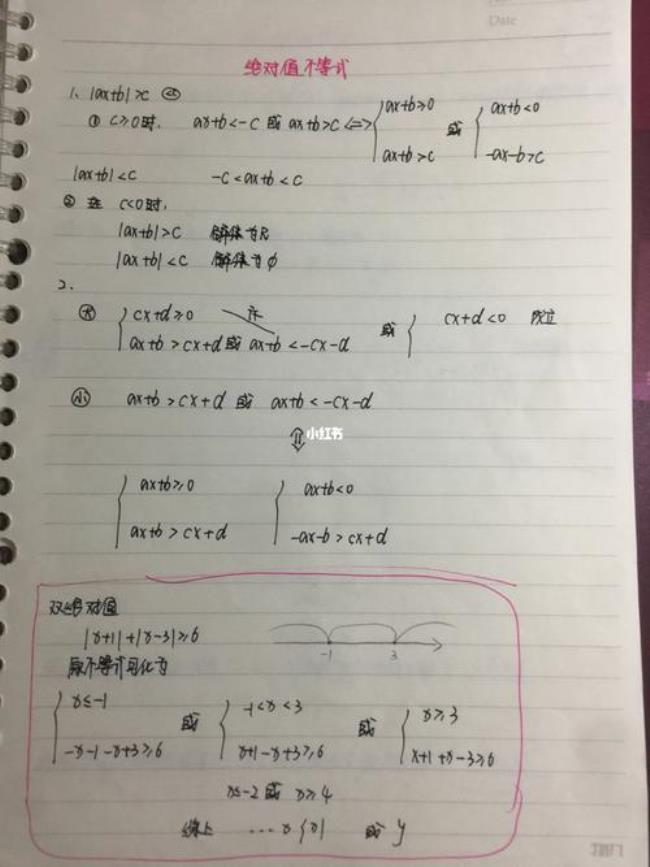 Date
绝对值不等式
1、|ax+b|>c
① c≥0时. ax+b<-c 或 ax+b>c <=> { ax+b≥0 ax+b>c 或 { ax+b<0 -ax-b>c
|ax+b|<c -c<ax+b<c
② 在 c<0时,
|ax+b|>c 解集为R
|ax+b|<c 解集为∅
2.
大 { cx+d≥0 或 { cx+d<0 成立
ax+b>cx+d或 ax+b<-cx-d
小 ax+b>cx+d 或 ax+b<-cx-d
⇕ 小红书
{ ax+b≥0 { ax+b<0
ax+b>cx+d -ax-b>cx+d
双绝对值
|x+1|+|x-3|≥6
-1 3
原不等式可化为
{ x≤-1 或 { -1<x<3 或 { x≥3
-x-1-x+3≥6 x+1-x+3≥6 x+1+x-3≥6
x≤-2或 x≥4
综上 ...x{x| 或 }